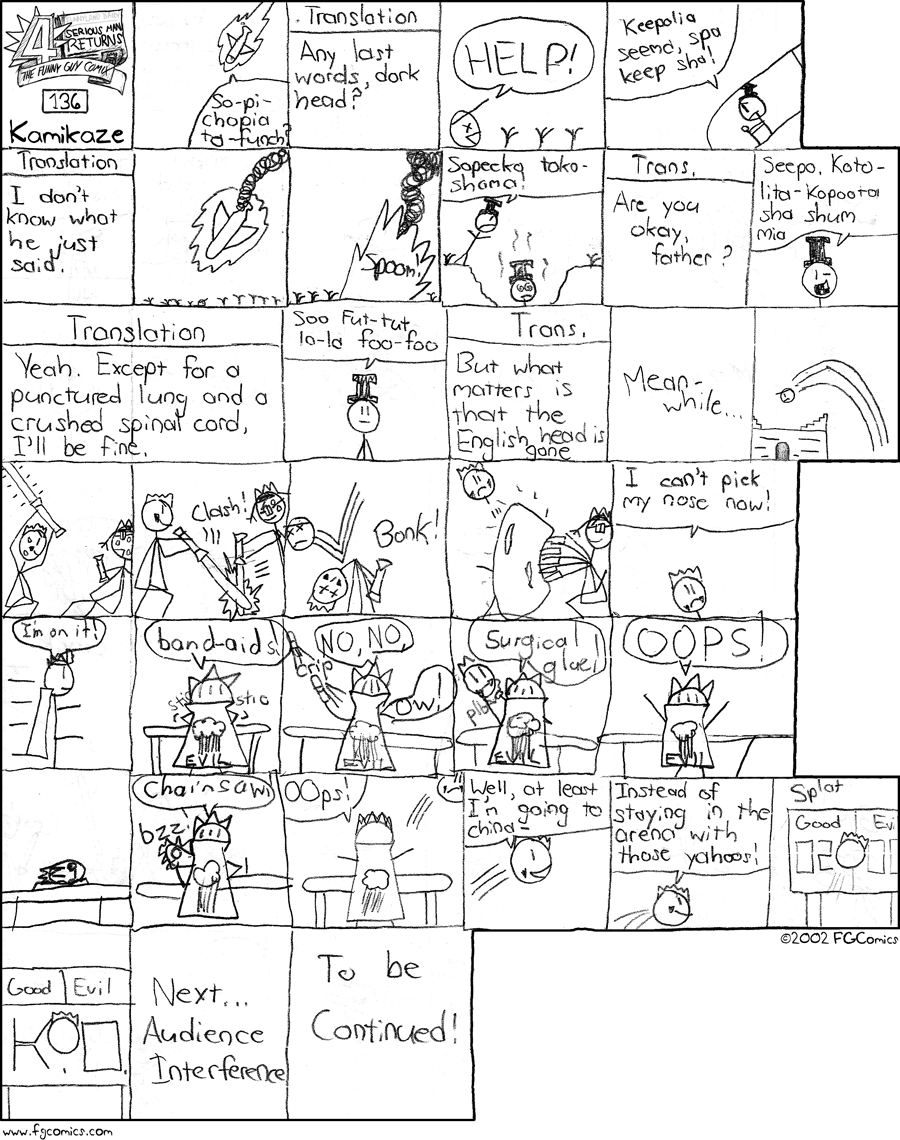 4
SERIOUS MAN
RETURNS
THE FUNNY GUY COMIX
136
Kamikaze
So-pi-
chopia
ta-funch?
Translation
Any last
words, dork
head?
HELP!
Keepolia
seemo, spa
keep sha!
Translation
I don't
know what
he just
said.
Spoom!
Sopecka toko-
shama!
Trans.
Are you
okay,
father?
Seepo. Kato-
lita-Kapoota
sha shum
mia
Translation
Yeah. Except for a
punctured lung and a
crushed spinal cord,
I'll be fine.
Soo Fut-tut
la-la foo-foo
Trans.
But what
matters is
that the
English head is
gone
Mean-
while...
Clash!
Bonk!
I can't pick
my nose now!
I'm on it!
band-aids!
stic
stic
EVIL
NO, NO,
rip
OW!
Surgical
glue!
EVIL
OOPS!
EVIL
Chainsaw!
bzz!
OOps!
Well, at least
I'm going to
china-
Instead of
staying in the
arena with
those yahoos!
Splat
Good Evi
©2002 FGComics
Good Evil
K O
Next...
Audience
Interference
To be
Continued!
www.fgcomics.com